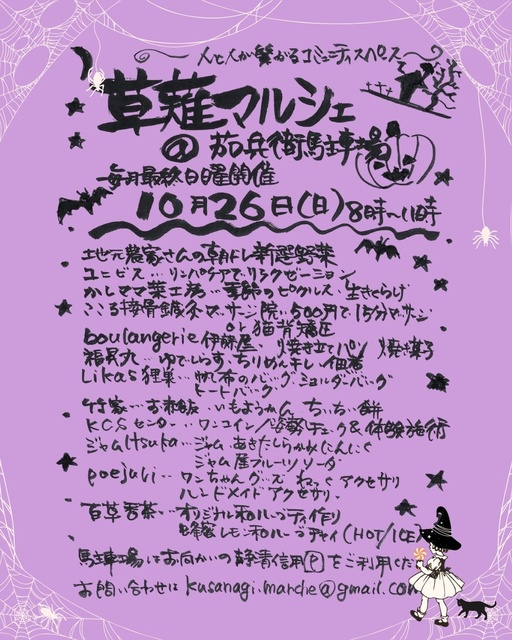 人と人が繋がるコミュニティスペース
草薙マルシェ
@ 茄兵衛駐車場
毎月最終日曜開催
10月26日(日)8時〜11時
地元農家さんの朝トレ新鮮野菜
ユニビス…リンパケアでリラクゼーション
かしママ菜工房…季節のピクルス、生きくらげ
こころ接骨鍼灸マッサージ院…500円で15分マッサージ
or 猫背矯正
boulangerie 伊藤屋…焼き立てパン 焼き菓子
福昌丸…ゆでしらす、ちりめん干し、佃煮
Likas 狸巣…帆布のバッグ、ショルダーバッグ
トートバッグ
竹家…お赤飯、いもようかん、ちぃちぃ餅
KCSセンター…ワンコイン/姿勢チェック&体験施術
ジャムItsuka…ジャム、あきたしらかみにんにく
ジャム屋フルーツソーダ
poejuli…ワンちゃんグッズ ねっくアクセサリ
ハンドメイドアクセサリー
百草香茶…オリジナル和ハーブティ作り
蜂蜜レモン和ハーブチャイ(HOT/ICE)
駐車場はお向かいの静清信用Ⓟをご利用くだ
お問い合わせは kusanagi.marche@gmail.com